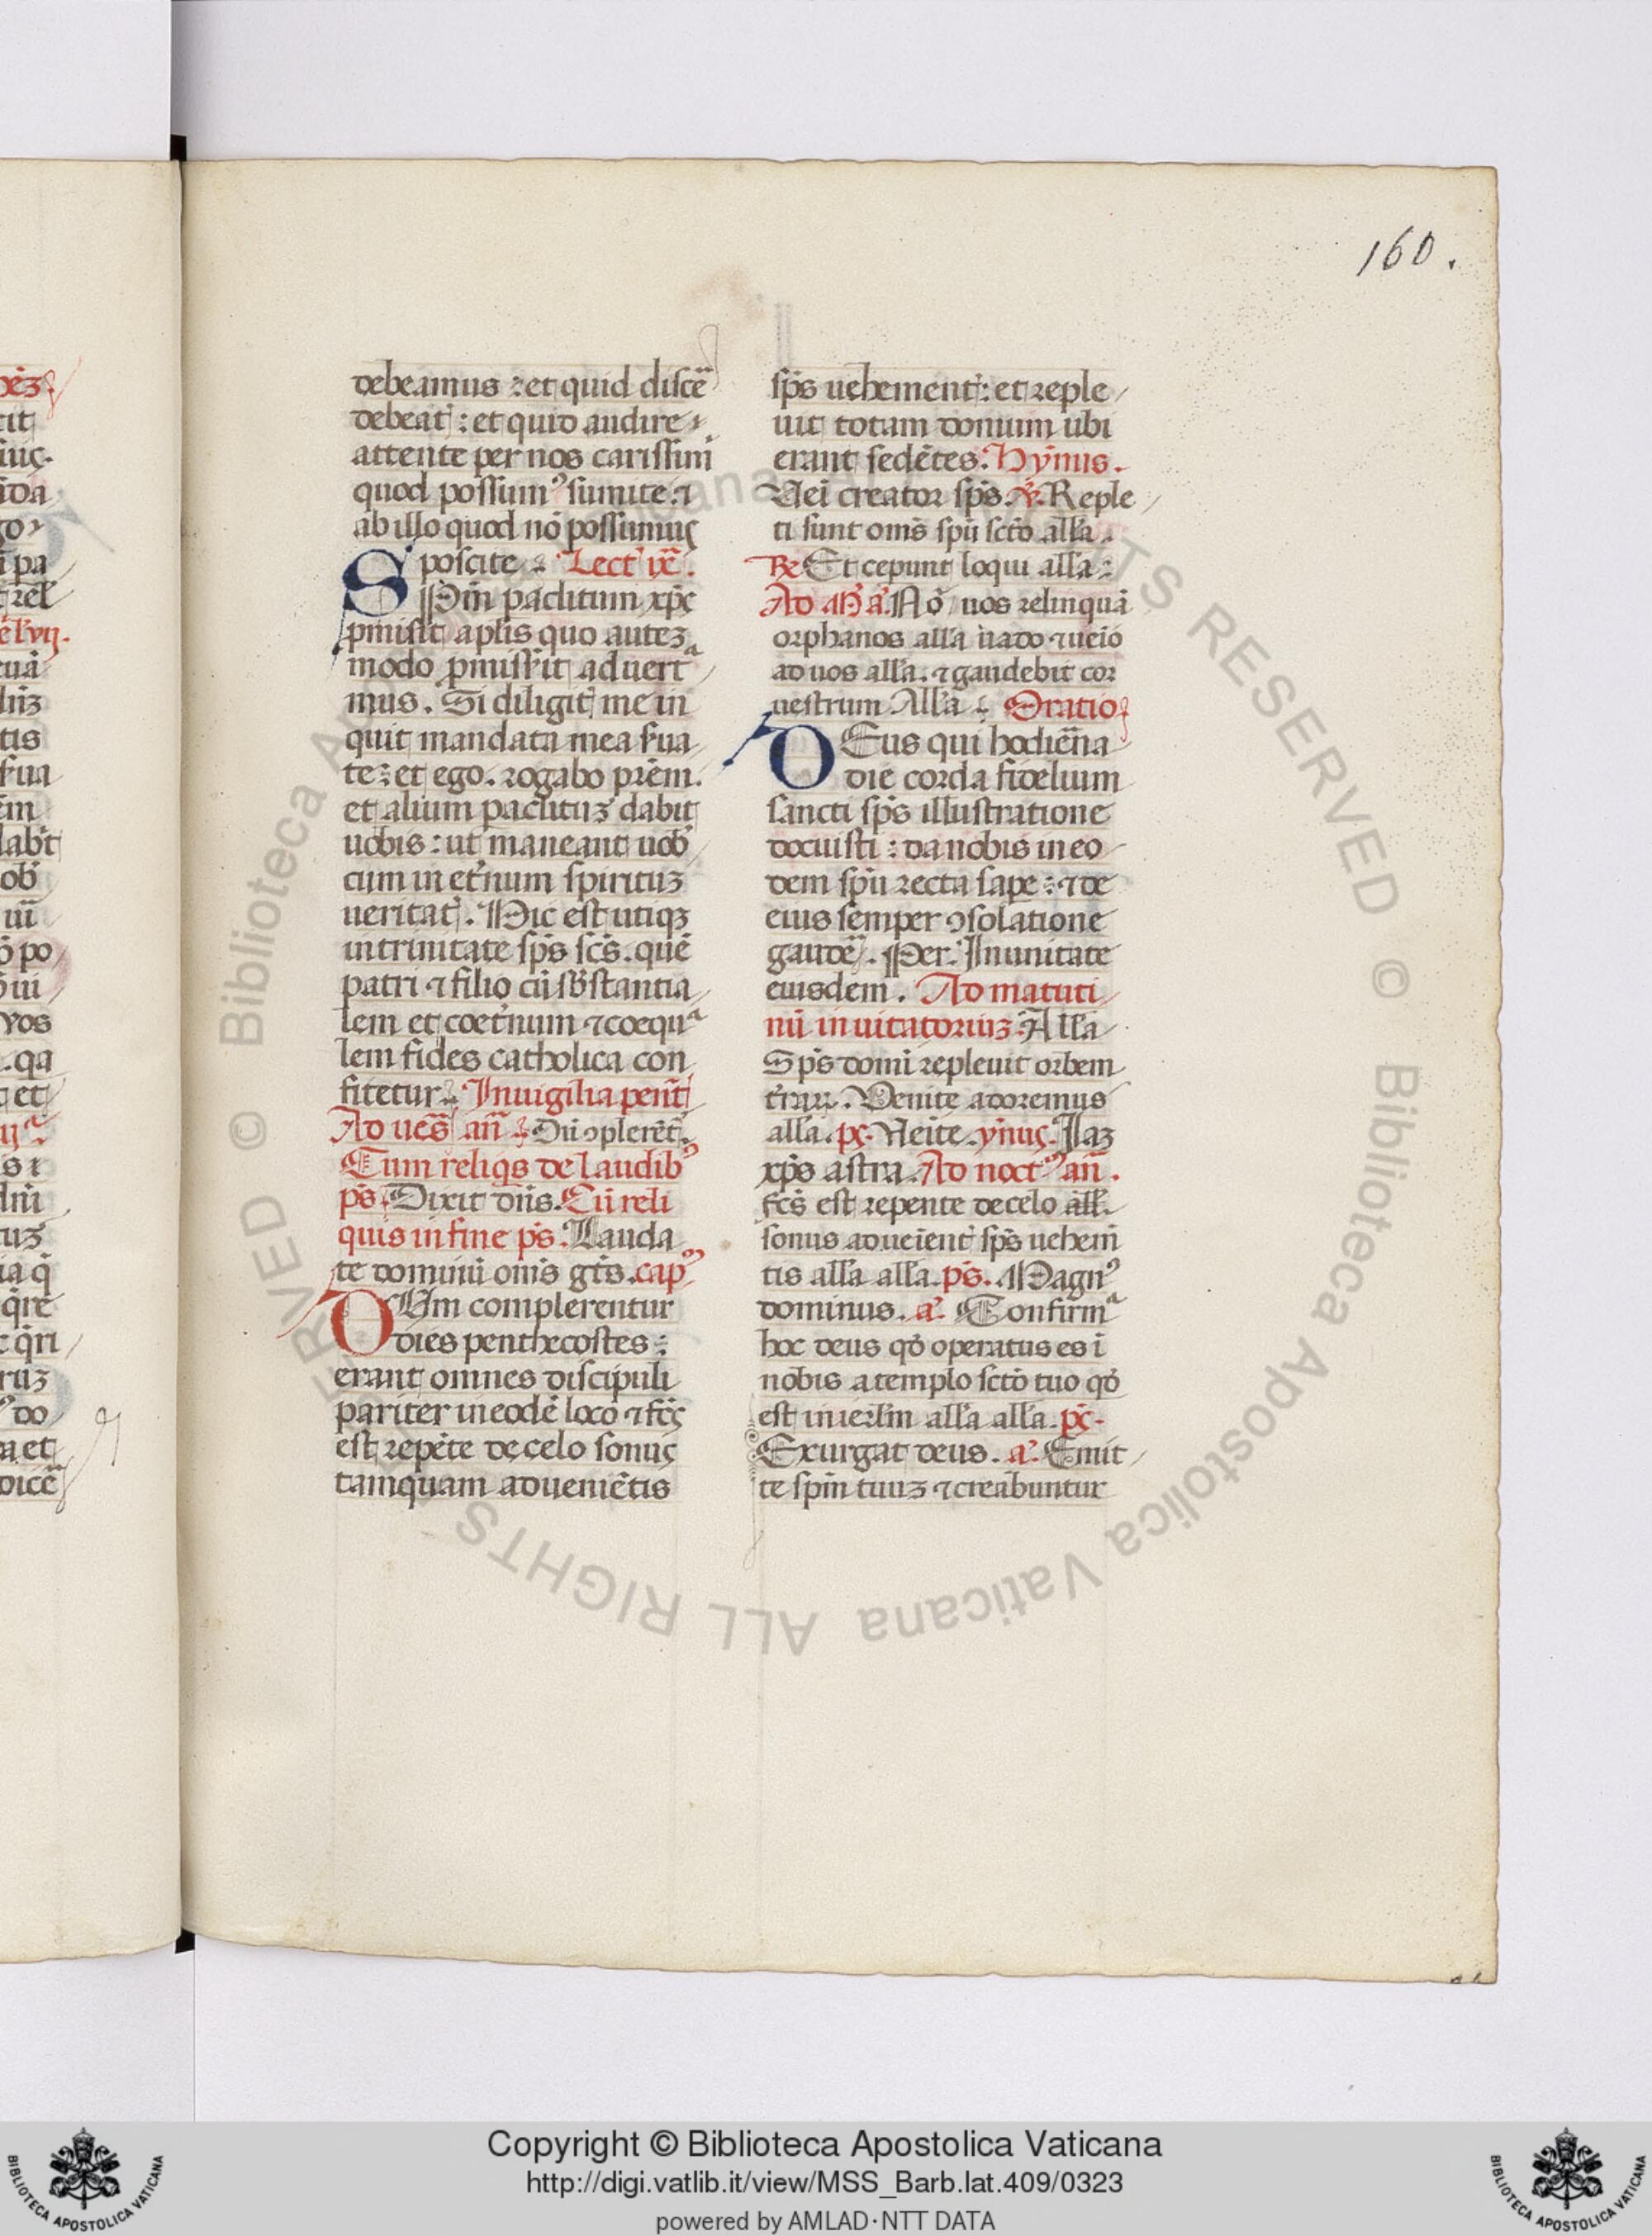 160.
debeamus : et quid discē
debeat : et quid audire
attente per nos carissimi
quod possumꝰ sumite. ⁊
ab illo quod nō possumus
poscite. Lectꝰ ix.
Spm̄ paclitum xp̄c
pmisit aplis quo autez
modo pmis̄it aduertᵃ
mus. Si diligit me in
quit mandata mea s̄ua
te : et ego. rogabo prēm.
et alium paclituz dabit
uobis : ut maneant uob̄
cum in et̄num spirituz
ueritat. Hic est utiqꝫ
in trinitate sp̄s sc̄s. quē
patri ⁊ filio cū sb̄stantia
lem et coet̄num ⁊ coequᵃ
lem fides catholica con
fitetur. In uigilia pent̄
Ad ues̄ an̄ Dū ꝯplerēt̄.
Cum reliqs de laudibꝰ
ps̄. Dixit dn̄s. Cū reli
quis in fine ps̄. Lauda
te dominū om̄s gt̄s. cap̄
DUm complerentur
dies penthecostes :
erant omnes discipuli
pariter in eodē loco ⁊ fc̄s
est repēte de celo sonus
tamquam aduenietīs
sp̄s uehement : et reple
uit totam domum ubi
erant sedētes. Hym̄us.
Uei creator sp̄s. ℣. Reple
ti sunt om̄s spū scto all̄a.
℞ Et ceperunt loqui all̄a :
Ad M̄ a. Nō uos relinquā
orphanos all̄a uado ⁊ ueīo
ad uos all̄a. ⁊ gaudebit cor
uestrum All̄a. Oratio
DEus qui hodiēna
die corda fidelium
sancti sp̄s illustratione
docuisti : da nobis in eo
dem spū recta sape : ⁊ de
eius semper ꝯsolatione
gaudē. Per. In unitate
eiusdem. Ad matuti
nū inuitatoriuz. All̄a
Sp̄s domī repleuit orbem
t̄raꝝ. Venite adoremus
all̄a. ps̄. Ueite. ym̄us. Iaz
xp̄s astra. Ad noctꝰ an̄.
fc̄s est repente de celo all̄.
sonus adueient̄ sp̄s uehem̄
tis all̄a all̄a. ps̄. Magnꝰ
dominus. a. Confirmᵃ
hoc deus qđ operatus es ī
nobis a templo sctō tuo qđ
est in ierlm̄ all̄a all̄a. ps̄.
Exurgat deus. a. Emit
te spm̄ tuuz ⁊ creabuntur
Copyright © Biblioteca Apostolica Vaticana
http://digi.vatlib.it/view/MSS_Barb.lat.409/0323
powered by AMLAD·NTT DATA
BIBLIOTECA APOSTOLICA VATICANA
BIBLIOTECA APOSTOLICA VATICANA
© Biblioteca Apostolica Vaticana ALL RIGHTS RESERVED © Biblioteca Apostolica Vaticana ALL RIGHTS RESERVED